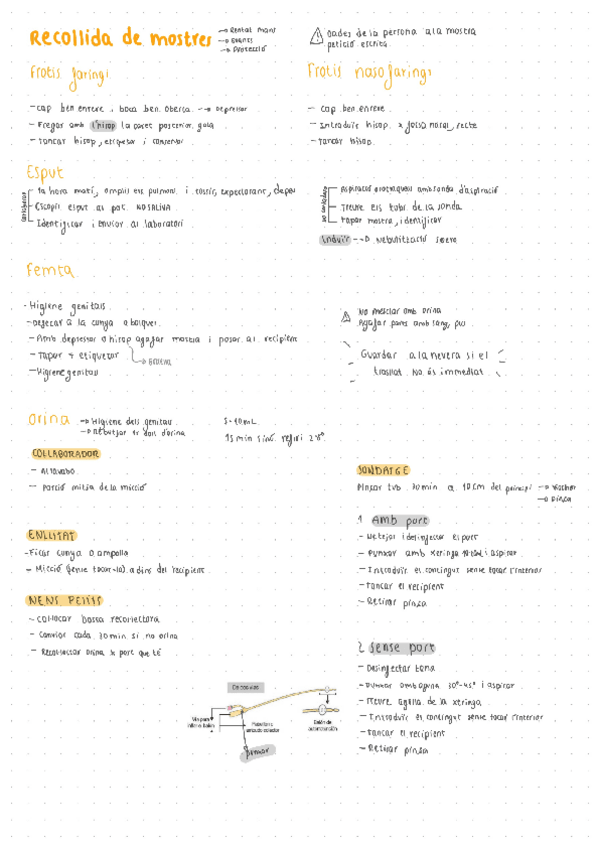 Recollida de mostres
→ Rentat mans
→ Guants
→ Protecció
dades de la persona a la mostra
petició escrita.
Frotis faringi
- Cap ben enrere, boca ben oberta. → Depressor
- Fregar amb l'hisop la paret posterior gola
- Tancar hisop, etiquetar i conservar
Frotis nasofaringi
- Cap ben enrere.
- Introduir hisop x fossa nasal, recte
- Tancar hisop.
Esput
1a hora matí, omplir els pulmons i tossir, expectorant,
Escopir esput al pot. NO SALIVA
Identificar i enviar al laboratori
Aspiració orotraqueal amb sonda d'aspiració
Treure els tubs de la sonda
Tapar mostra, identificar
Induir --→ Nebulització sèrum
Femta
- Higiene genitals.
- Defecar a la cunya o bolquer.
- Amb depressor o hisop agafar mostra i posar al recipient
- Tapar + etiquetar
- Higiene genital
No mesclar amb orina
Agafar parts amb sang, pus
Guardar a la nevera si el
trasllat no és immediat
Orina
→ Higiene dels genitals.
→ Rebutjar 1r doll d'orina
5-10mL
15 min sinó refri 2-8º
COL·LABORADOR
- Al lavabo.
- Porció mitja de la micció
ENLLITAT
- Ficar cunya o ampolla
- Micció (sense tocar-lo) a dins del recipient.
NENS PETITS
- Col·locar bossa recol·lectora
- Canviar cada 30min si no orina
- Recol·lectar orina x port que té
SONDATGE
Pinçar tub 30min a 10cm del principi → Kocher
→ Pinça
1. Amb port
- Netejar i desinfectar el port
- Punxar amb xeringa 10mL i aspirar
- Introduir el contingut sense tocar l'interior
- Tancar el recipient
- Retirar pinça
2. Sense port
- Desinfectar zona
- Punxar amb agulla 30º-45º i aspirar
- Treure agulla de la xeringa
- Introduir el contingut sense tocar l'interior
- Tancar el recipient
- Retirar pinça
De dos vías
Vía para
inflar el balón
Balón de
autorretención
punxar